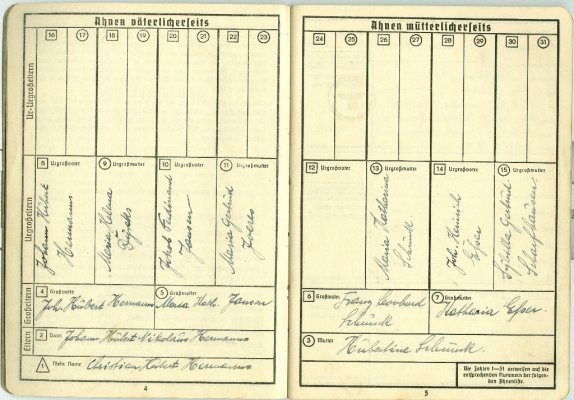 Ahnen väterlicherseits
16 17 18 19 20 21 22 23
Ur-Urgroßeltern
Urgroßeltern
8 Urgroßvater 9 Urgroßmutter 10 Urgroßvater 11 Urgroßmutter
Johann Hubert
Hermanns
Maria Helena
Jakob Ferdinand
Jansen
Maria Gertrud
Großeltern
4 Großvater 5 Großmutter
Joh. Hubert Hermanns Maria Kath. Jansen
Eltern
2 Vater
Johann Hubert Nikolaus Hermanns
1 Mein Name
Christian Hubert Hermanns
4
Ahnen mütterlicherseits
24 25 26 27 28 29 30 31
12 Urgroßvater 13 Urgroßmutter 14 Urgroßvater 15 Urgroßmutter
Maria Katharina
Schunck
Joh. Heinrich
Esser
Sybilla Gertrud
Scharfhausen
6 Großvater 7 Großmutter
Franz Leonhard
Schunck
Katharia Esser.
3 Mutter
Hubertina Schunck.
Die Zahlen 1—31 verweisen auf die
entsprechenden Nummern der folgen-
den Ahnenliste.
5